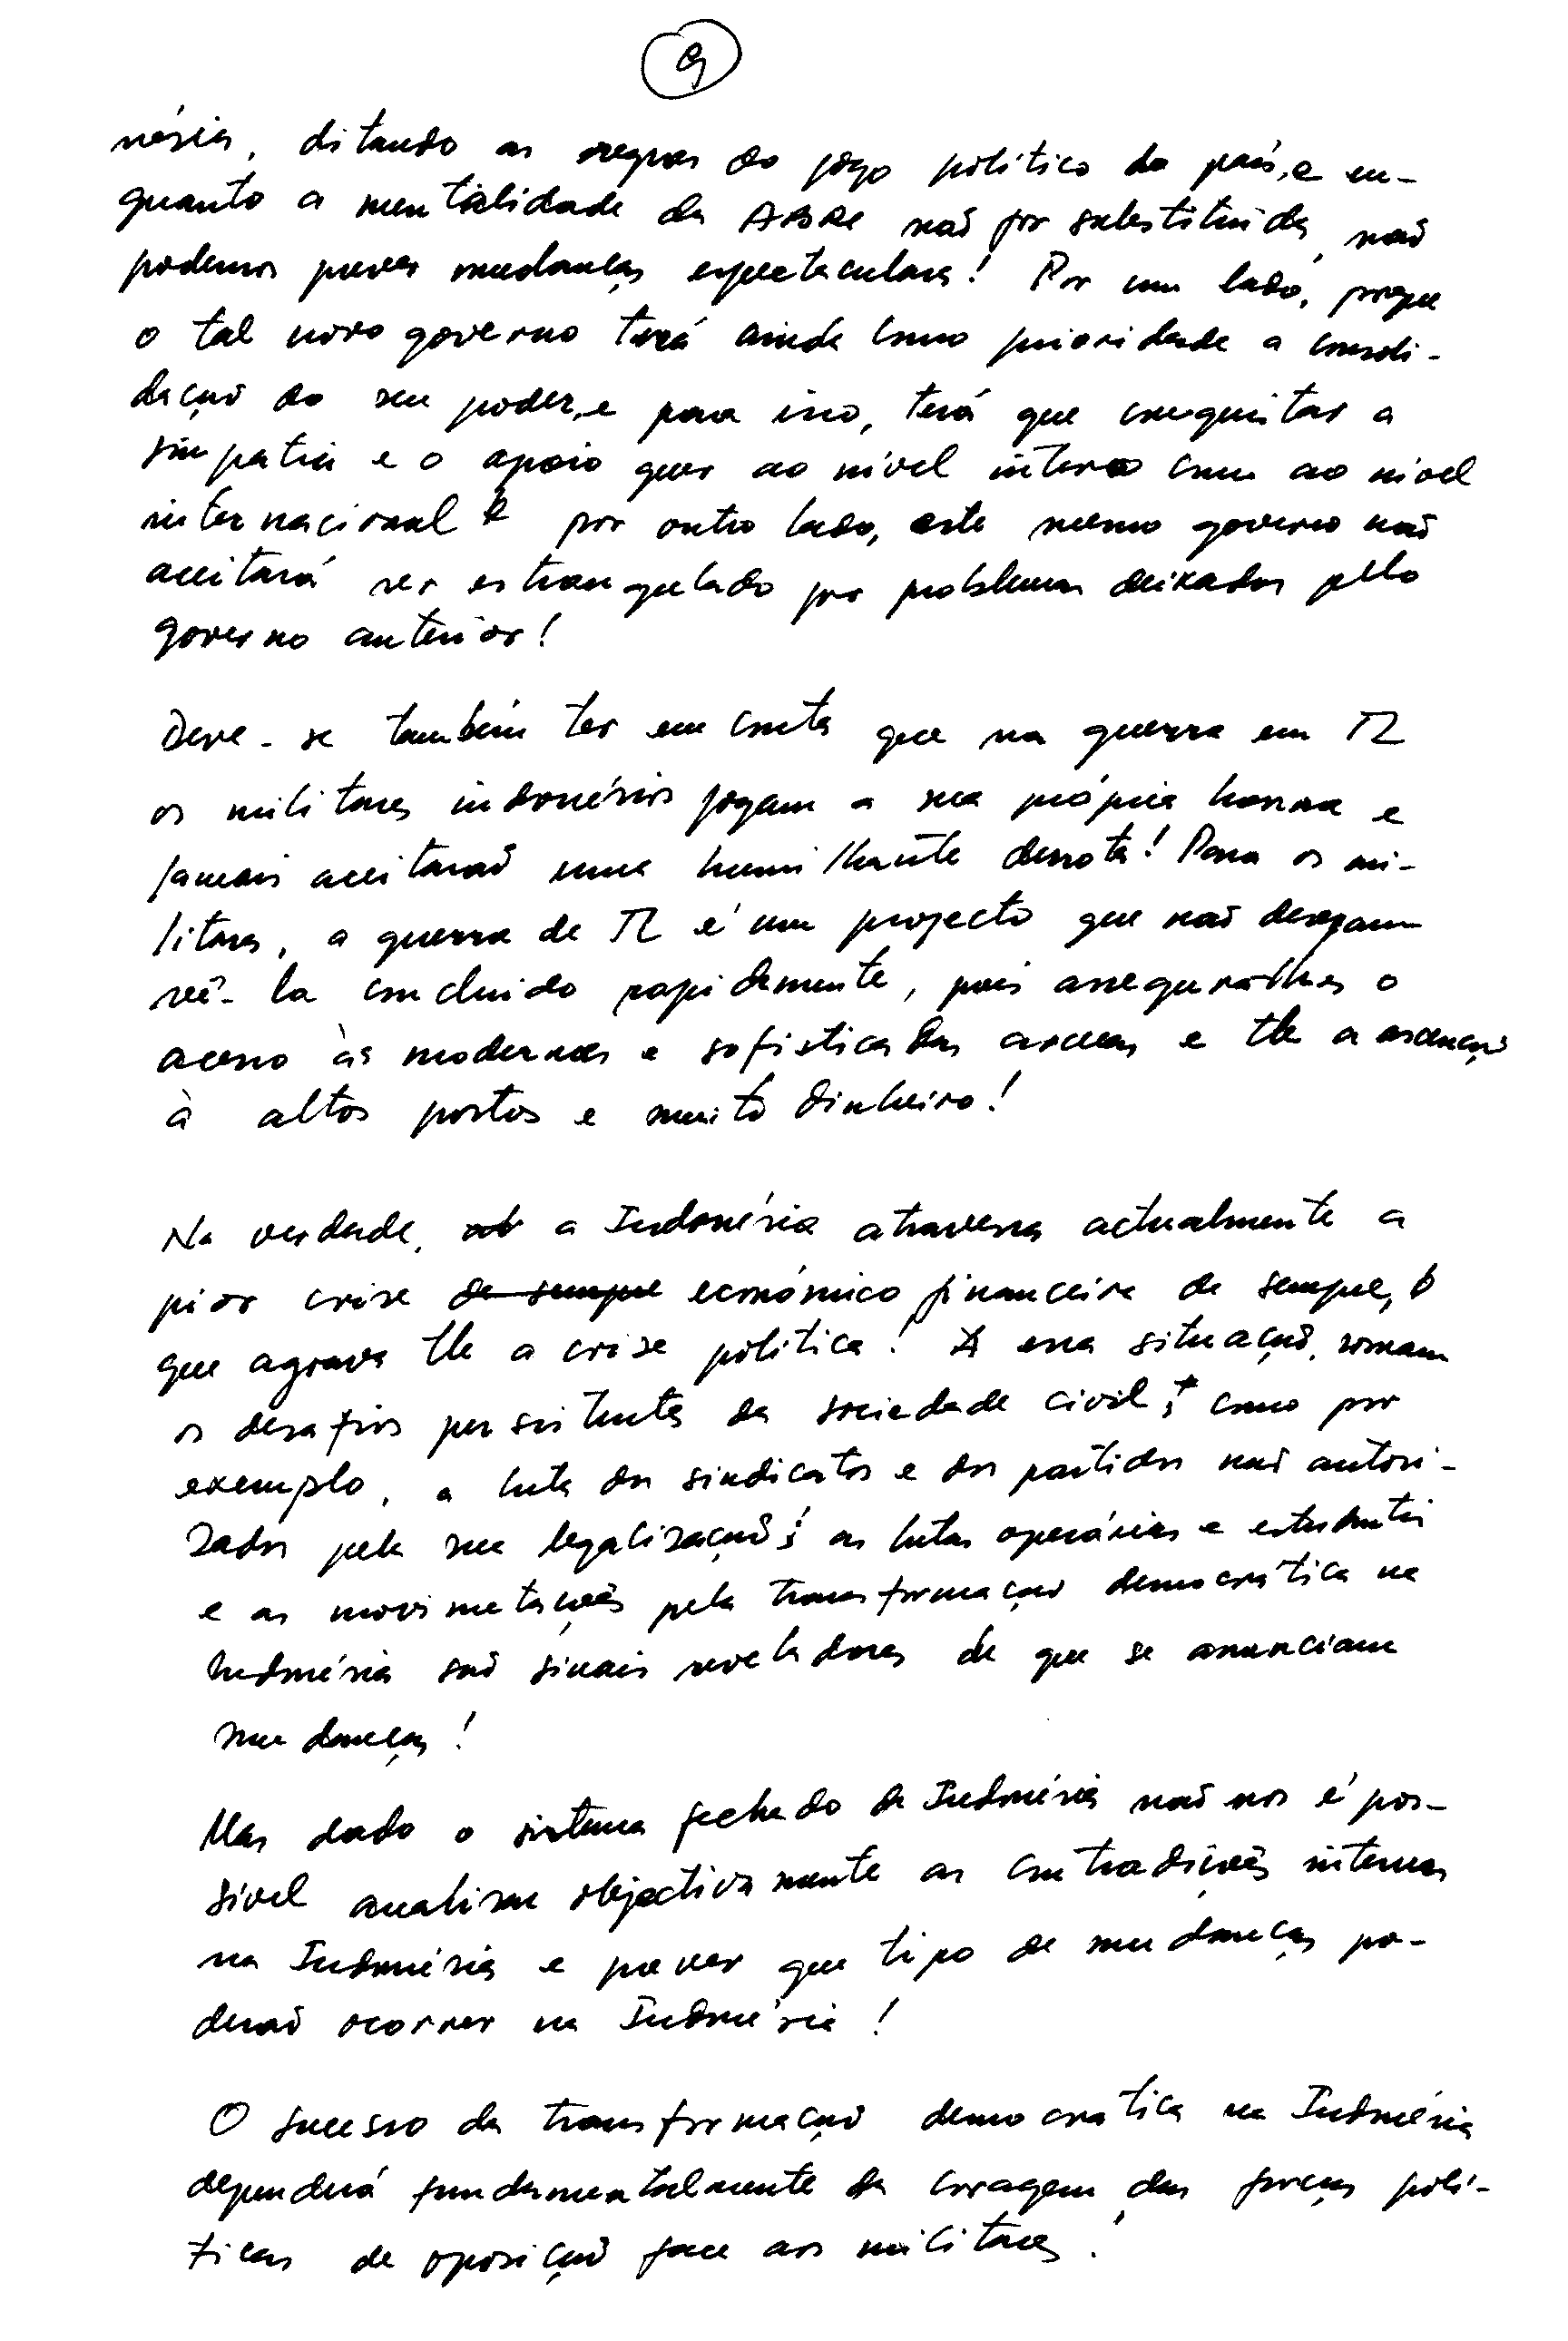 9
nésia, ditando as regras do jogo político do país, e en-
quanto a mentalidade da ABRI não for substituída, não
podemos prever mudanças espectaculares! Por um lado, porque
o tal novo governo terá ainda como prioridade a consoli-
dação do seu poder, e para isso, terá que conquistar a
simpatia e o apoio quer ao nível interno como ao nível
internacional e por outro lado, este mesmo governo não
aceitará ser estrangulado por problemas deixados pelo
governo anterior!
Deve-se também ter em conta que na guerra em TL
os militares indonésios jogam a sua própria honra e
jamais aceitarão uma humilhante derrota! Para os mi-
litares, a guerra de TL é um projecto que não desejam
vê-la concluido rapidamente, pois assegura-lhes o
acesso às modernas e sofisticadas armas e lhe a ascenção
à altos postos e muito dinheiro!
Na verdade, a Indonésia atravessa actualmente a
pior crise de sempre económico financeira de sempre, o
que agrava lhe a crise política! A essa situação, somam
os desafios persistentes da sociedade civil, como por
exemplo, a luta dos sindicatos e dos partidos não autori-
zados pela sua legalização; as lutas operárias e estudantis
e as movimetações pela transformação democratica na
Indonésia são sinais reveladores de que se anunciam
mudanças!
Mas dado o sistema fechado da Indonésia não nos é pos-
sível analisar objectivamente as contradições internas
na Indonésia e prever que tipo de mudanças po-
derão ocorrer na Indonésia!
O sucesso da transformação democratica na Indonésia
dependerá fundamentalmente da coragem das forças polí-
ticas de oposição face aos militares!